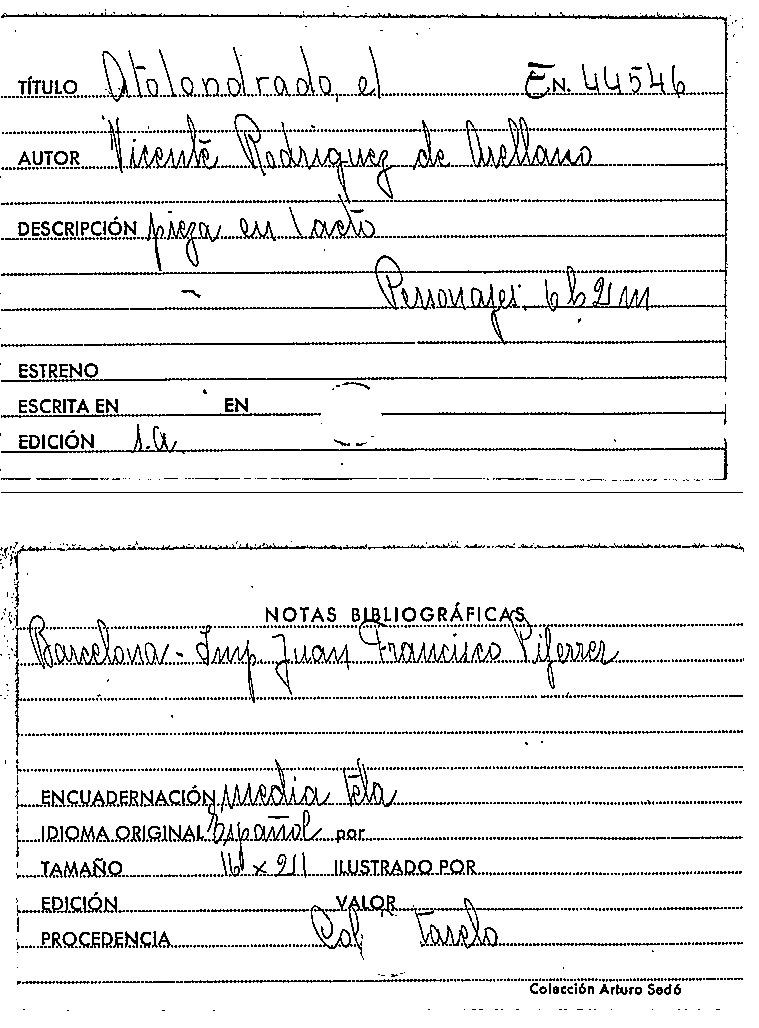 TÍTULO Atolondrado, el EN. 44546
AUTOR Vicente Rodriguez de Arellano
DESCRIPCIÓN pieza en 1 acto
Personajes: 6 h 2 m
ESTRENO
ESCRITA EN EN
EDICIÓN s.a.
NOTAS BIBLIOGRÁFICAS
Barcelona - Imp. Juan Francisco Piferrer
ENCUADERNACIÓN media tela
IDIOMA ORIGINAL Español por
TAMAÑO 16 x 21 ILUSTRADO POR
EDICIÓN VALOR
PROCEDENCIA Col
Colección Arturo Sedó